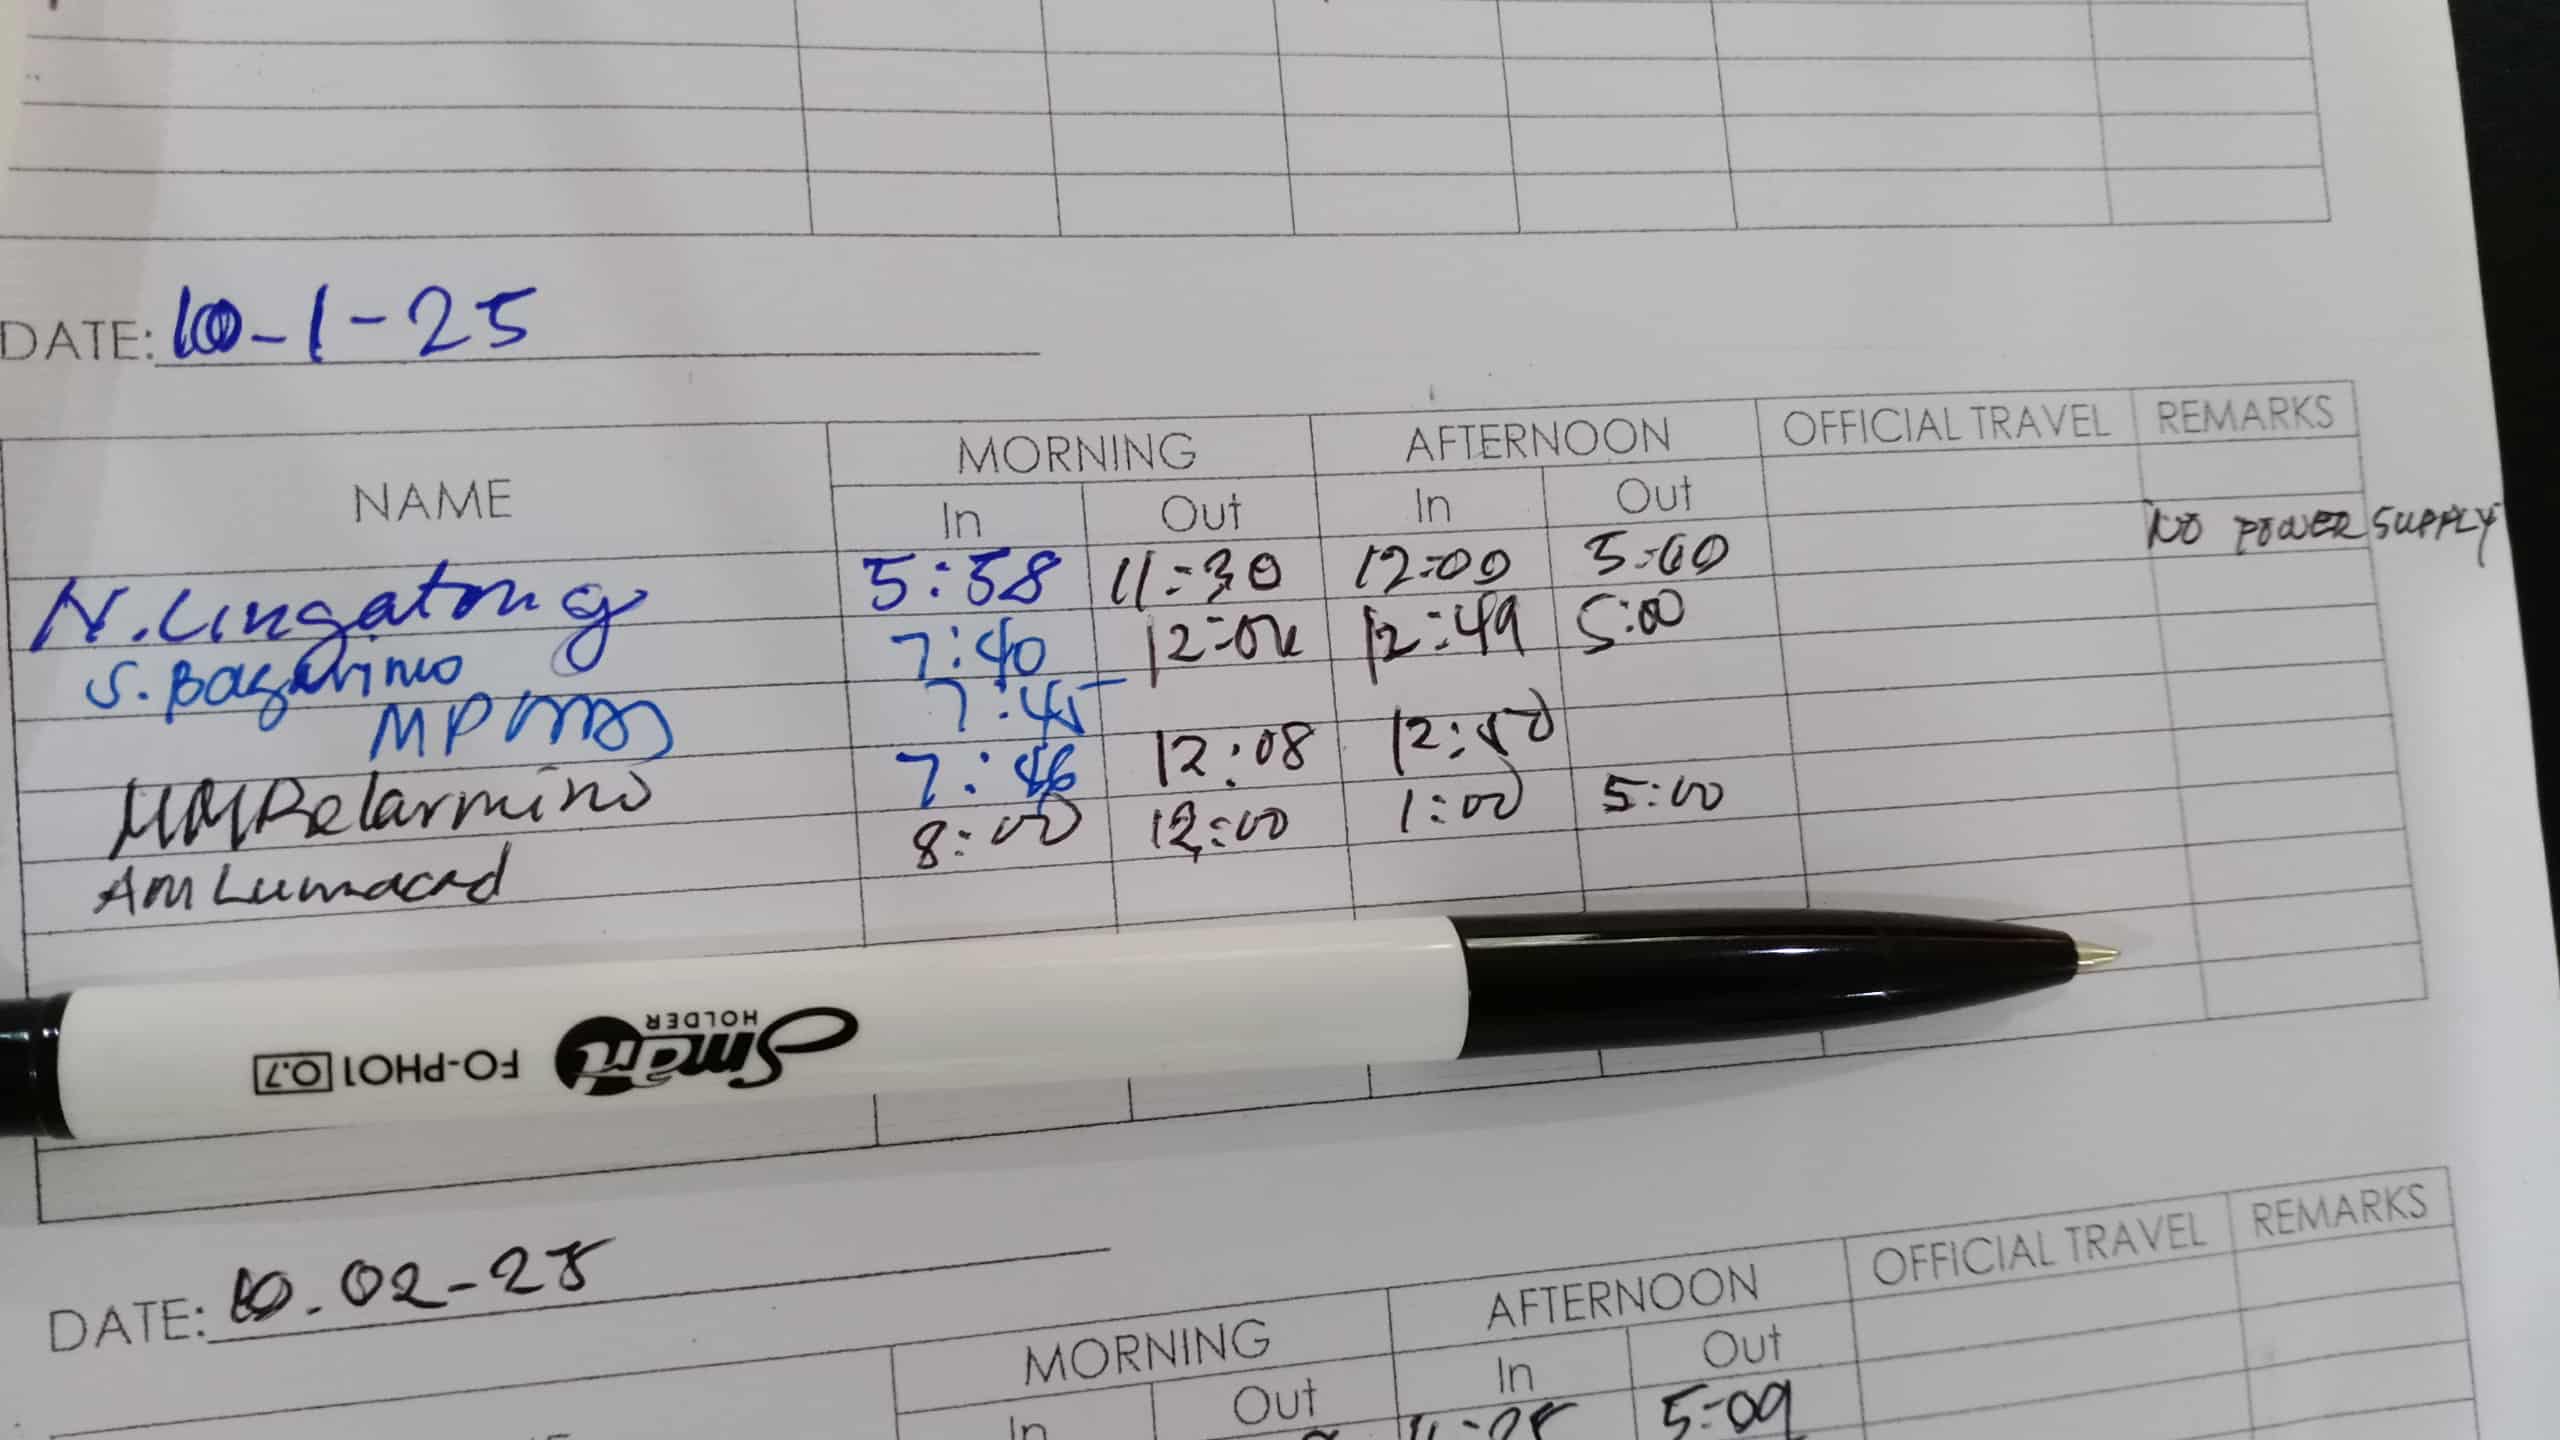 DATE: 10-1-25
NAME MORNING AFTERNOON OFFICIAL TRAVEL REMARKS
In Out In Out
N. Lingatong 5:58 11:30 12:00 5:00 NO POWER SUPPLY
S. Bagarino 7:40 12:02 12:49 5:00
MP 7:45
MMBelarmino 7:46 12:08 12:50
AM Lumacad 8:00 12:00 1:00 5:00
Smart HOLDER FO-PH01 0.7
DATE: 10.02-25
MORNING AFTERNOON OFFICIAL TRAVEL REMARKS
In Out In Out
5:09